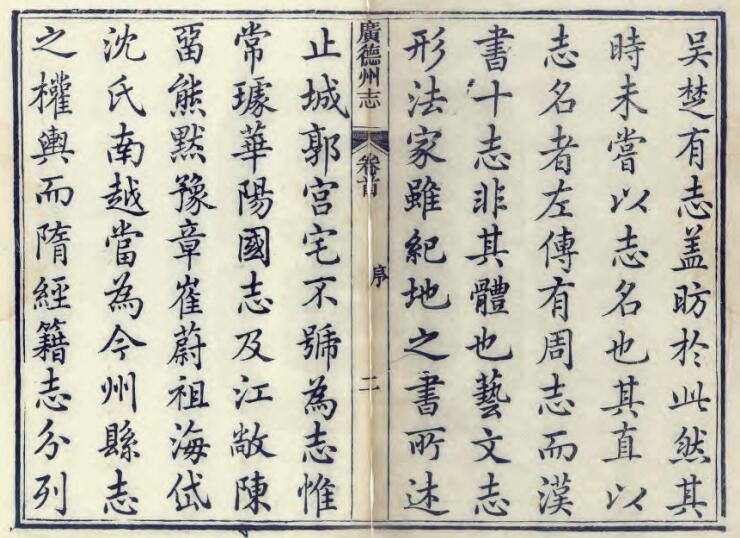 吴楚有志盖昉於此然其
時未嘗以志名也其直以
志名者左傳有周志而漢
書十志非其體也藝文志
形法家雖紀地之書所述
廣德州志
卷首
序
二
止城郭宫宅不號為志惟
常璩華陽國志及江敞陳
畱熊默豫章崔蔚祖海岱
沈氏南越當為今州縣志
之權輿而隋經籍志分列